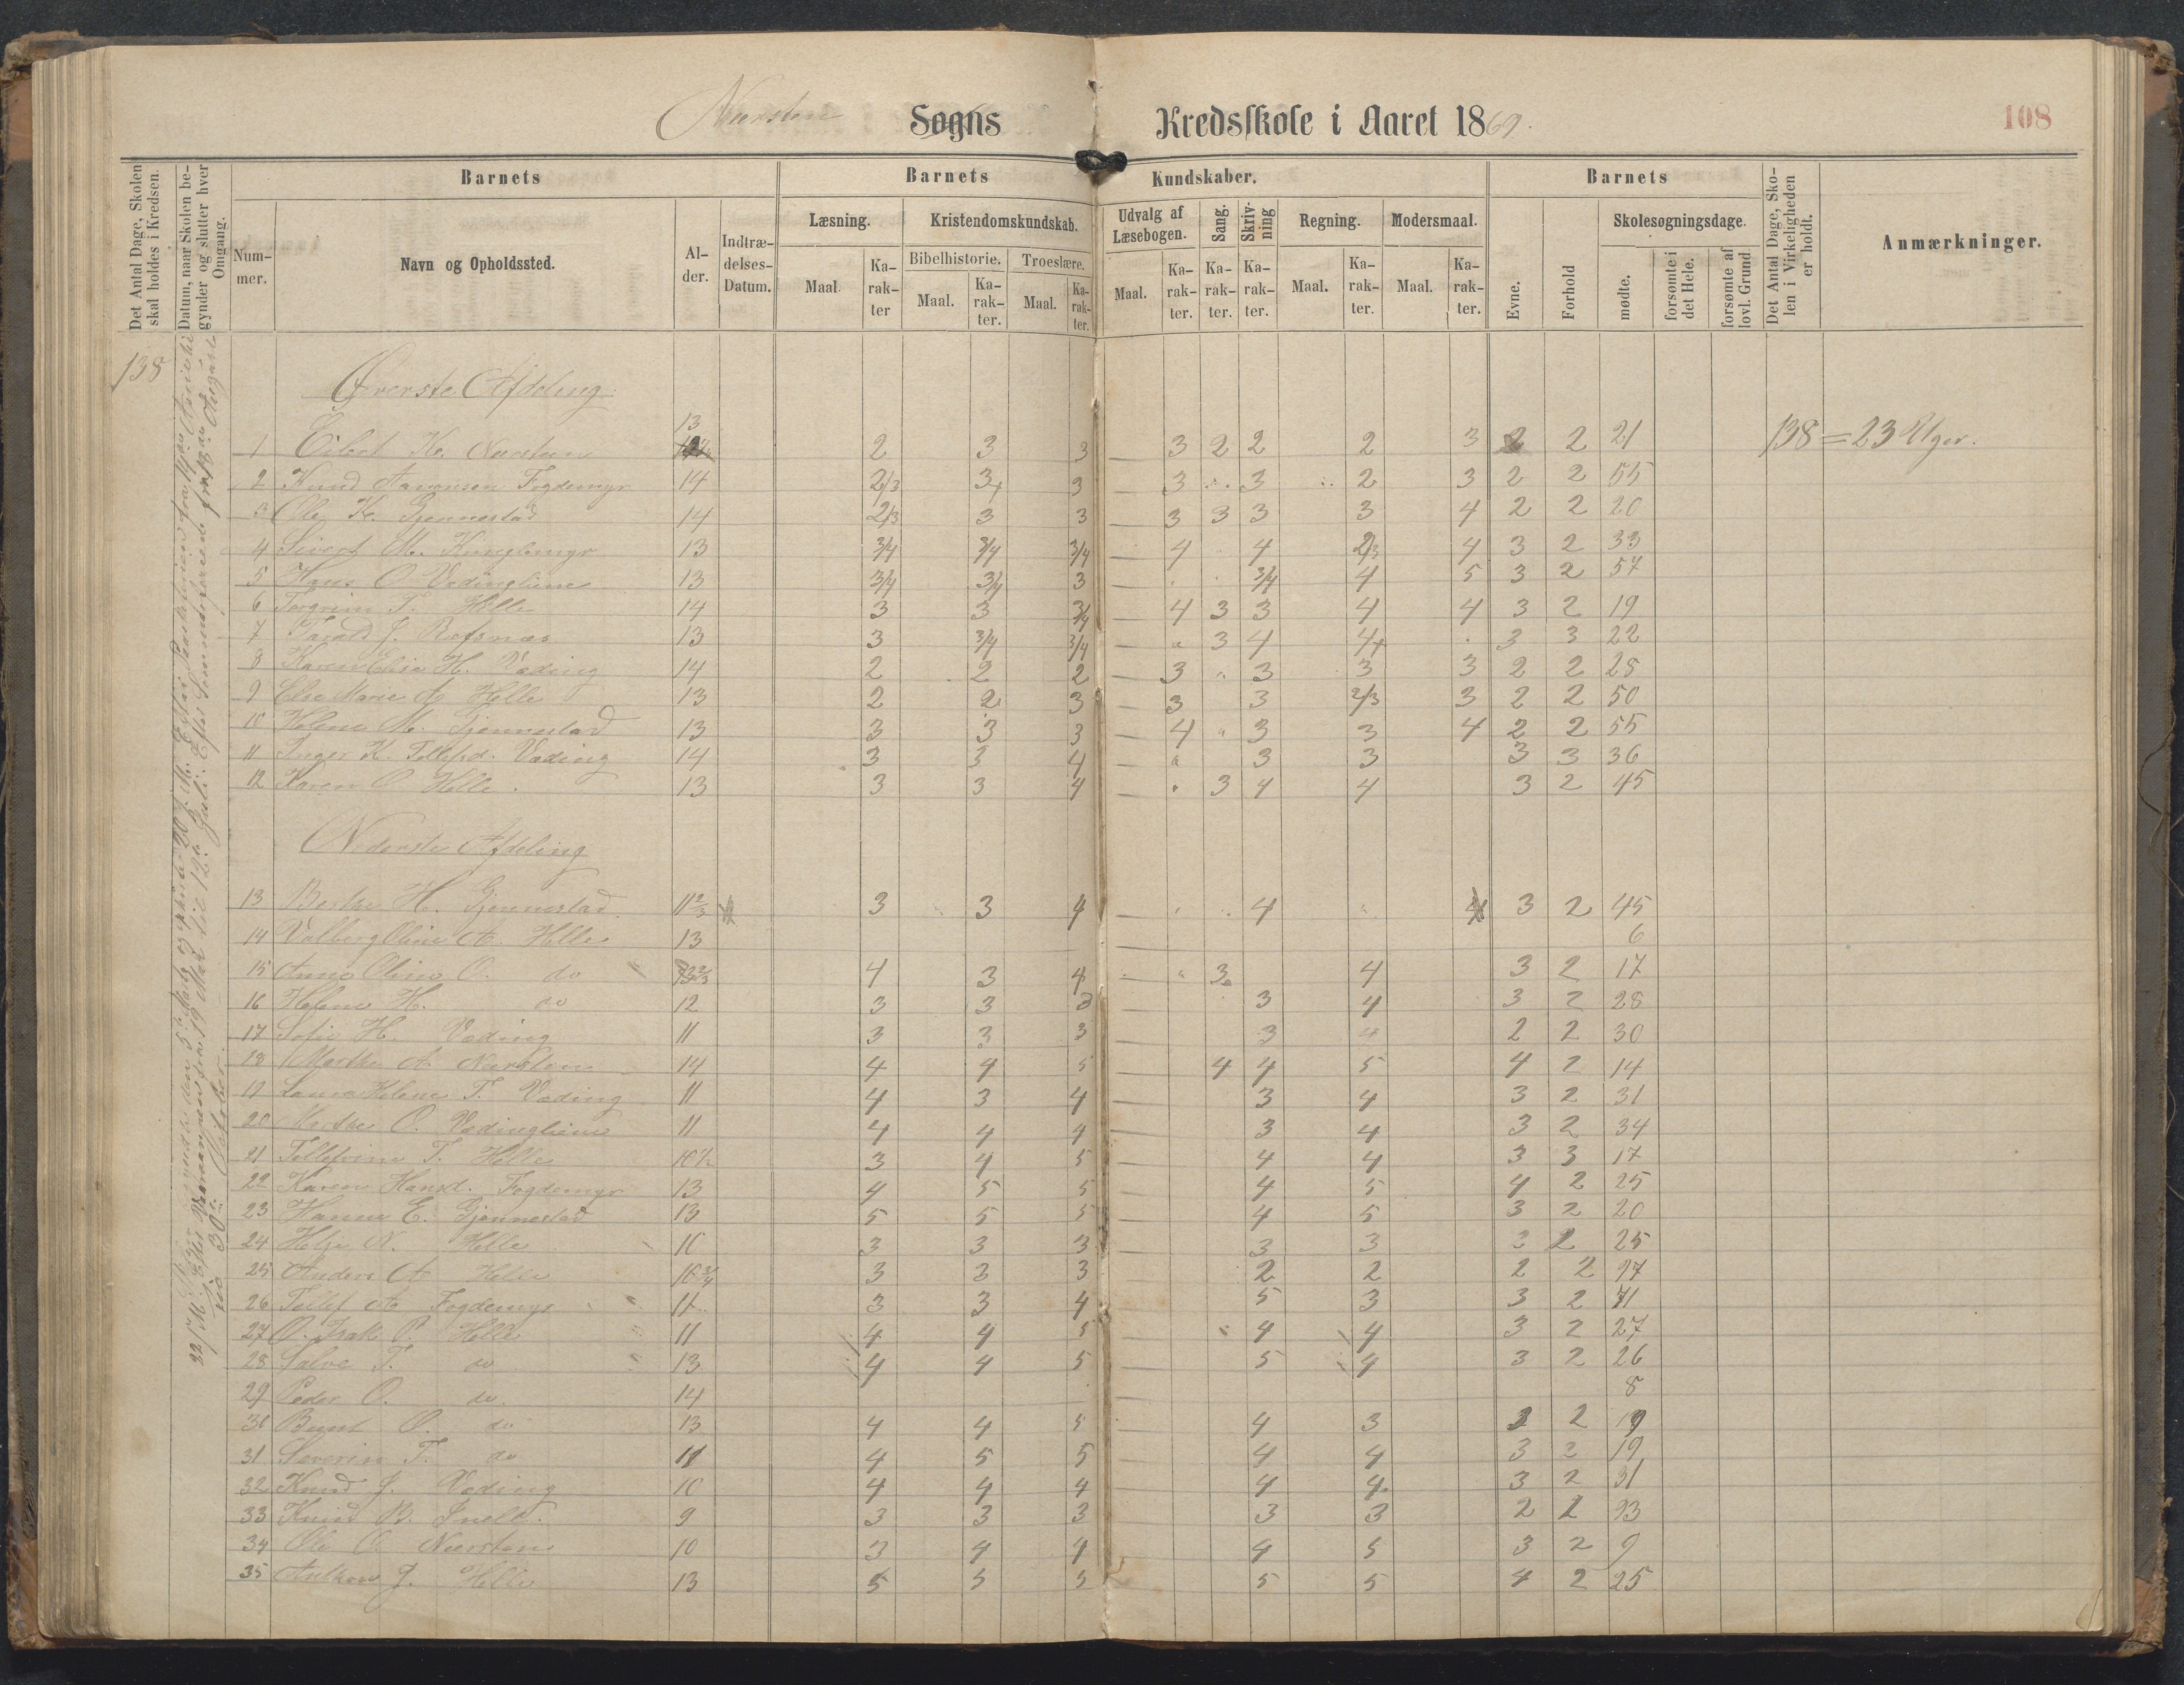 Sogns Kredsskole i Aaret 1869.
108
Det Antal Dage, Skolen skal holdes i Kredsen.
Datum, naar Skolen begynder og slutter hver Omgang.
Barnets
Nummer.
Navn og Opholdssted.
Alder.
Indtrædelses-Datum.
Barnets Kundskaber.
Læsning.
Maal
Karakter
Kristendomskundskab.
Bibelhistorie.
Maal.
Karakter.
Troeslære.
Maal.
Karakter.
Udvalg af Læsebogen.
Maal.
Karakter.
Sang.
Karakter.
Skrivning
Karakter.
Regning.
Maal.
Karakter.
Modersmaal.
Maal.
Karakter.
Barnets
Evne.
Forhold
Skolesøgningsdage.
mødte.
forsømte i det Hele.
forsømte af lovl. Grund
Det Antal Dage, Skolen i Virkeligheden er holdt.
Anmærkninger.
138
Øverste Afdeling
1 13 2 3 3 3 2 2 2 3 2 2 21 138 = 23 Uger.
2 Knud Aanonsen Fogdemyr 14 2/3 3 3 3 3 2 3 2 2 55
3 Ole K. Gjennestad 14 2/3 3 3 3 3 3 3 4 2 2 20
4 Sivert M. 13 3/4 3/4 3/4 4 4 2/3 4 3 2 33
5 Hans O. Vedingliene 13 3/4 3/4 3 3/4 4 5 3 2 57
6 Torgrim T. Helle 14 3 3 3/4 4 3 3 4 4 3 2 19
7 Tarald J. 13 3 3/4 3/4 3 4 4 3 3 22
8 Karen Elise H. Væding 14 2 2 2 3 3 3 3 2 2 28
9 Else Marie A. Helle 13 2 2 3 3 3 2/3 3 2 2 50
10 Helene M. Gjennestad 13 3 3 3 4 3 3 4 2 2 55
11 Inger K. Tellefsd. Væding 14 3 3 4 3 3 3 3 36
12 Karen O. Helle. 13 3 3 4 3 4 4 3 2 45
Nederste Afdeling
13 Berthe H. Gjennestad 11 2/3 3 3 4 4 3 2 45
14 Valborg Oline A. Helle 13 6
15 Anne Oline O. do 4 3 4 3 4 3 2 17
16 Helene H. do 12 3 3 3 3 4 3 2 28
17 Sofie H. Væding 11 3 3 3 3 4 2 2 30
18 Marthe A. Nærsten 14 4 4 5 4 4 5 4 2 14
19 Laura Helene T. Væding 11 4 3 4 3 4 3 2 31
20 Marthe O. Vædingliene 11 4 4 4 3 4 3 2 34
21 T. Helle 10 1/2 3 4 5 4 4 3 3 17
22 Karen Hansd. Fogdemyr 13 4 5 5 4 5 4 2 25
23 Hanne E. Gjennestad 13 5 5 5 4 5 3 2 20
24 Helje N. Helle 10 3 3 3 3 3 2 25
25 Anders A. Helle 10 3/4 3 3 3 2 2 2 2
26 Tellef A. Fogdemyr 11 3 3 4 5 3 3 2
27 O. Isak P. Helle 11 4 4 5 4 4 3 2 27
28 Salve T. do 13 4 4 5 5 4 3 2 26
29 Peder O. do 14 8
30 O. do 13 4 4 5 4 3 2
31 Severin T. do 11 4 5 5 4 4 3 2 19
32 Knud J. Væding 10 4 4 4 4 4 3 2 31
33 Knud 9 3 3 3 3 3 2 2
34 Ole O. Nærsten 10 3 4 4 4 5 3 2 9
35 J. Helle 13 5 5 5 5 5 4 2 25